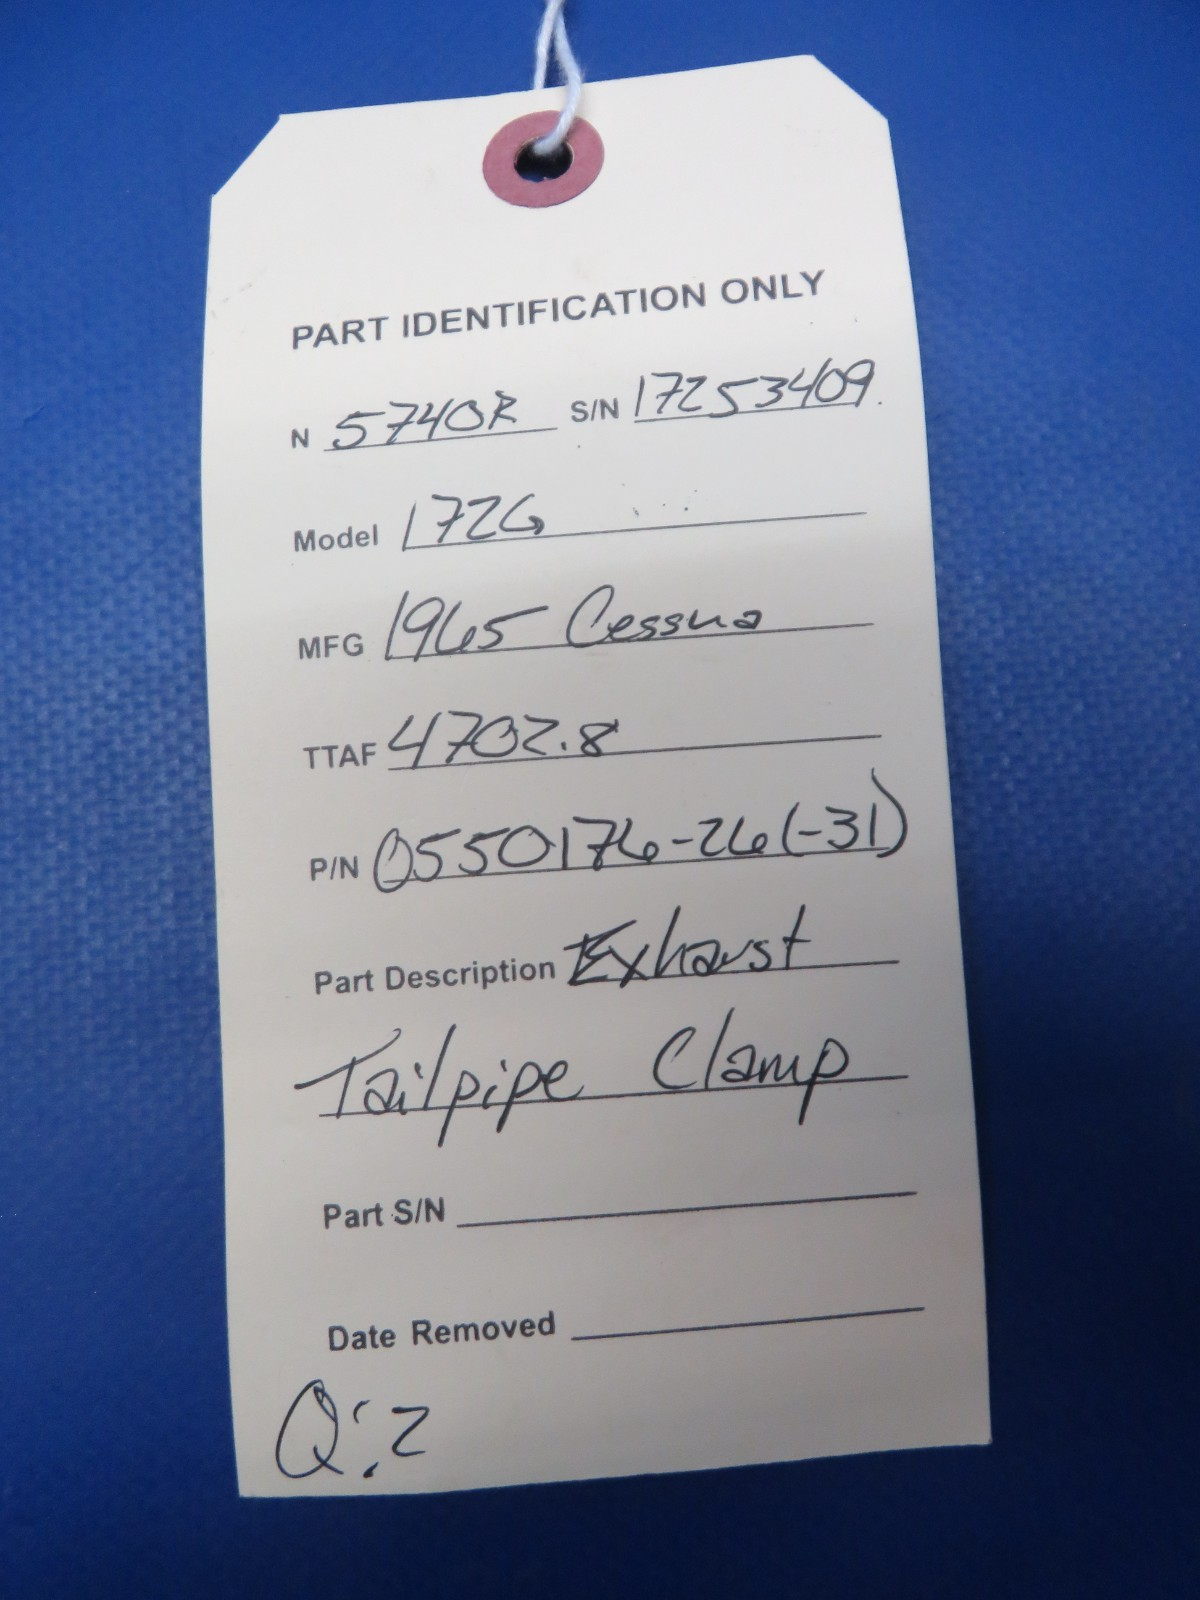 PART IDENTIFICATION ONLY
N 5740R S/N 17253409
Model 172G
MFG 1965 Cessna
TTAF 4702.8
P/N 0550176-26(-31)
Part Description Exhaust
Tailpipe Clamp
Part S/N
Date Removed
Q:2